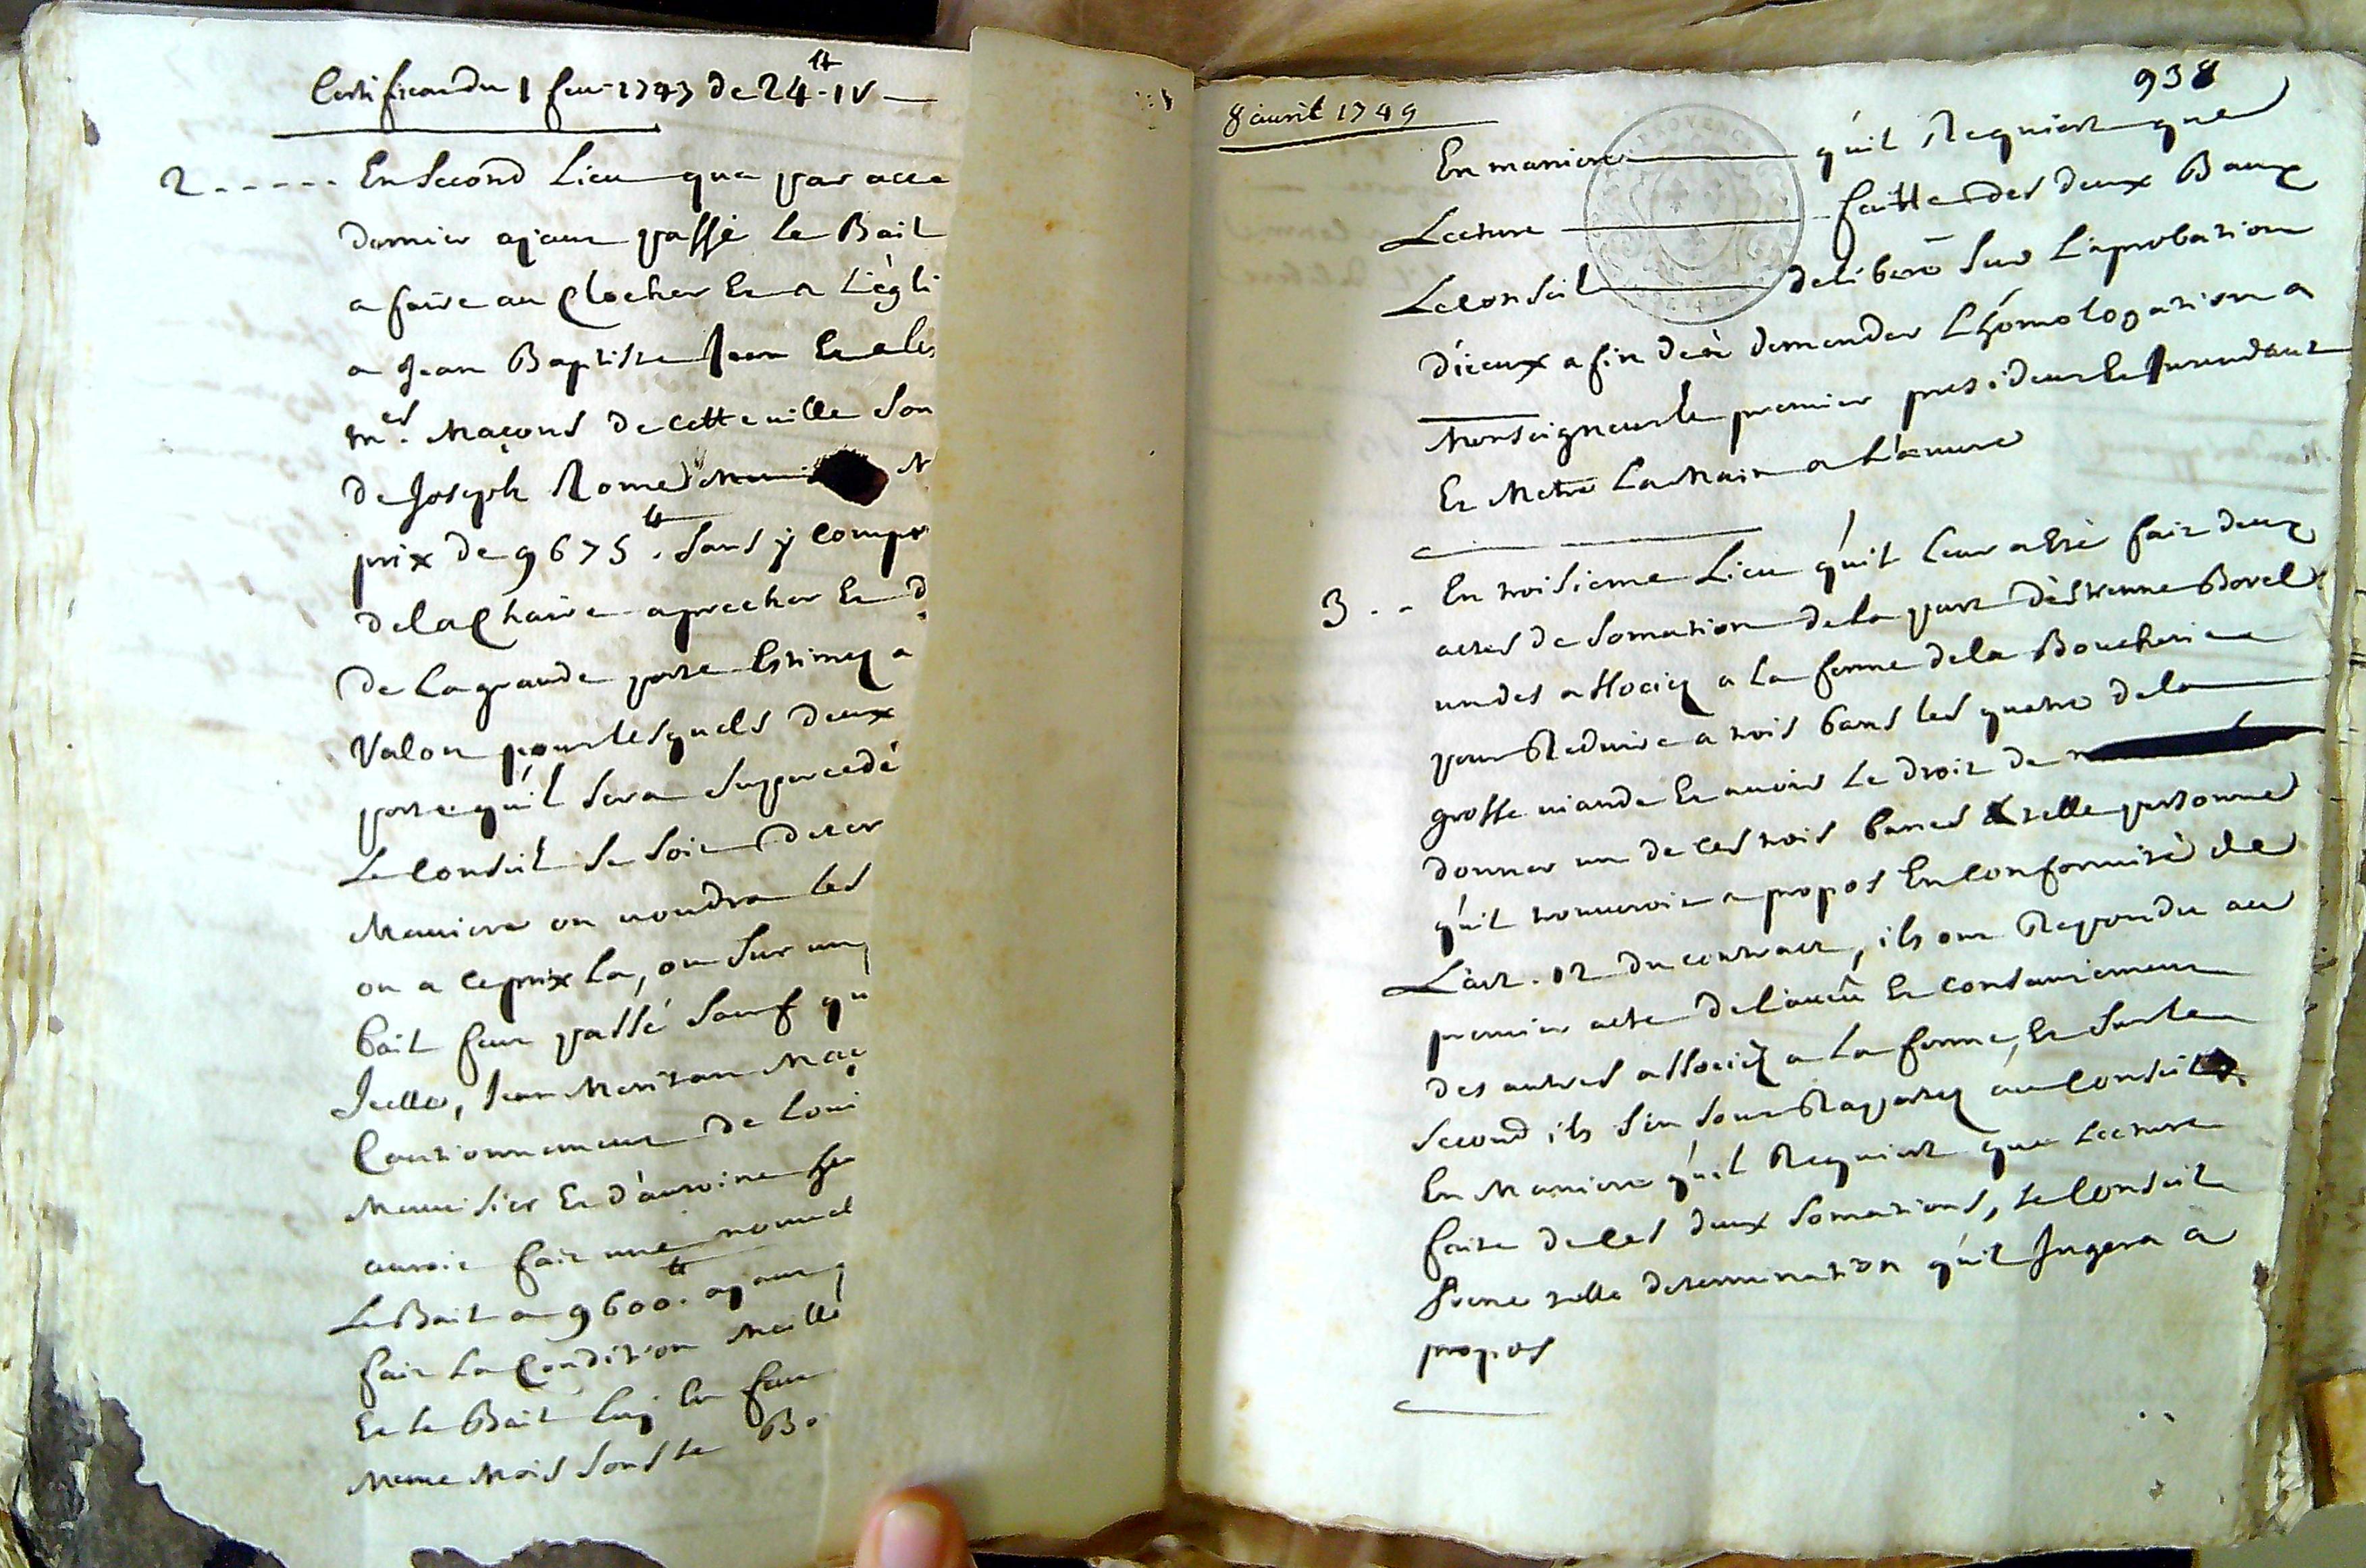 Certificat du 1 feu. 1743 de 24 ₶ 1 V
2 - - - - - - En Second Lieu que par acte
dernier ajant passé Le Bail
a faire au Clocher Et a L'égli
a Jean Baptiste Jean Et ales
mes. Maçons de cette ville Sou
de Joseph Rome
prix de 9675 ₶. Sans ÿ compr
de la Chaire aprecher Et d
de La grande porte Estimez a
Valon pour lesquels deux
porte qu'il Sera Supercedé
Le Conseil Se Soit deter
Maniere on voudra Les
ou a ceprix La, ou Sur un
bail feut passé Sauf qu
Icelles, Jean Meritan Maç
Cautionnement de Loui
Menuisier Et d'antoine
auroit fait une nouvel
Le Bail a 9600 ₶. ajant
fait La Condition Meille
Et Le Bail Luÿ En feut
Meme Mois Sous Le
938
8 avril 1749
En maniere qu'il Requiert que
Lecture faitte des deux Baux
Le Conseil deliberé Sur L'aprobation
d'iceux afin d'en demander L'homologation a
Monseigneur le premier president Et Intendant
Et Metre La Main a L'œuvre
3 - - En troisieme Lieu qu'il Leur a Eté fait deux
actes de Somation de la part d'Estienne Borel
un des associez a La ferme de la Boucherie
pour Reduire a trois bans les quatre de la
grosse viande Et avoir Le droit de
donner un de ces trois bancs a telle personne
qu'il trouveroit a propos En Conformité de
L'art. 12 du contract, ils ont Repondu au
premier acte de l'aveu Et consantement
des autres associéz a La ferme, Et Sur le
Second ils S'en Sont Raportez au Conseil
En Maniere qu'il Requiert que Lecture
faite de ces deux Somations, Le Conseil
prene telle determination qu'il Jugera a
propos